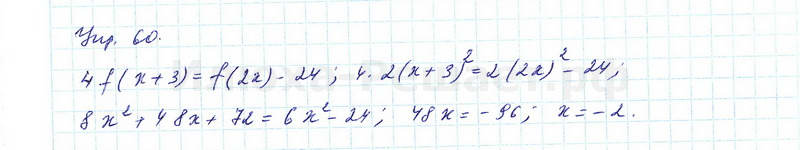 Упр. 60.
4f(x+3)=f(2x)-24; 4·2(x+3)²=2(2x)²-24;
8x²+48x+72=6x²-24; 48x=-96; x=-2.